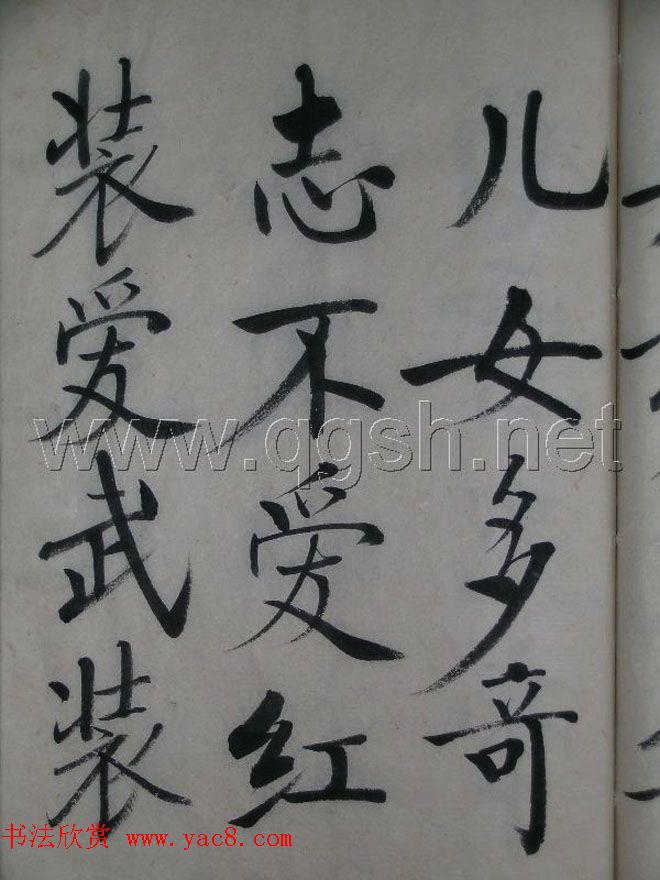 儿女多奇
志不爱红
装爱武装
www.qgsh.net
书法欣赏 www.yac8.com